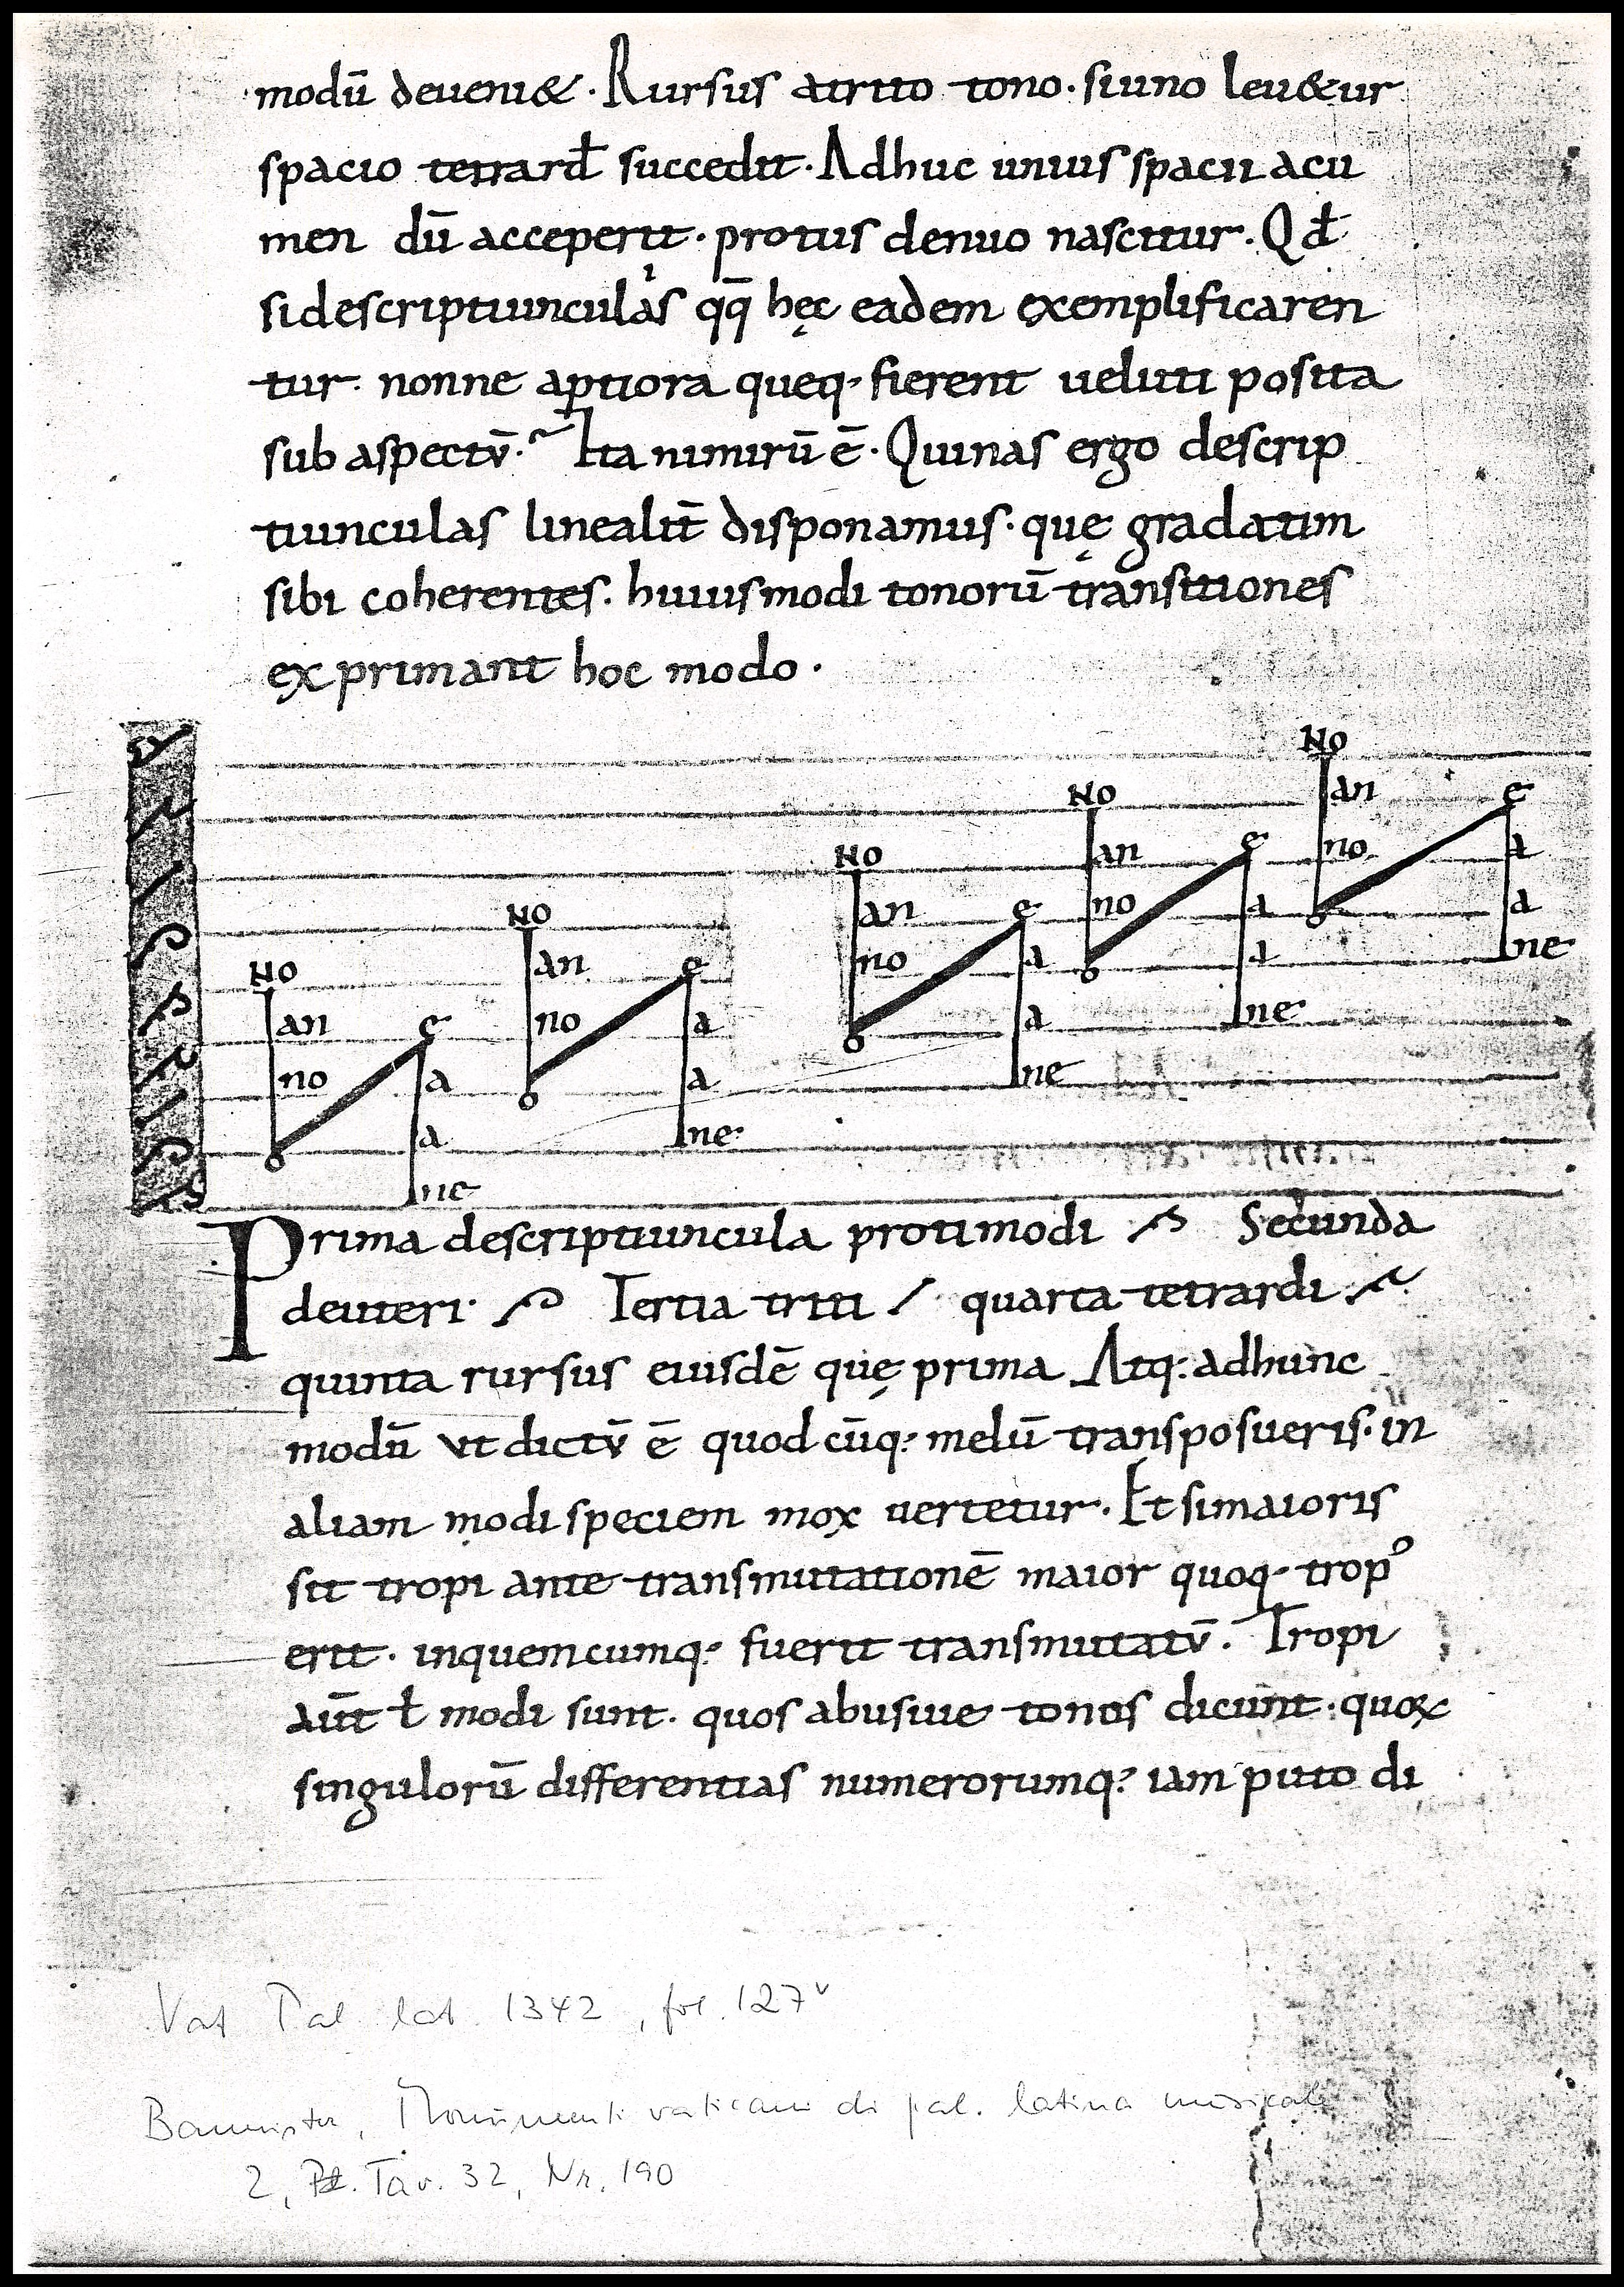 modū deueni&. Rursus atrito tono. siuno leu&ur
spacio tetrarđ succedit. Adhuc unius spacii acu
men dū acceperit. protus denuo nascitur. Qđ
sidescriptiunculas qq̄ hęc eadem exemplificaren
tur. nonne aptiora queq; fierent ueluti posita
sub aspectv̄. Ita nimirū ē. Quinas ergo descrip
tiunculas linealit̄ disponamus. quę gradatim
sibi coherentes. huiusmodi tonorū transitiones
exprimant hoc modo.
No an no o e a a ne
No an no o e a a ne
No an no o e a a ne
No an no o e a a ne
No an no o e a a ne
Prima descriptiuncula protimodi Secunda
deuteri. Tertia triti quarta tetrardi
quinta rursus eiusdē quę prima Atq; adhunc
modū vt dictv̄ ē quodcūq; melū transposueris. in
aliam modi speciem mox uertetur. Et simaioris
sit tropi ante transmutationē maior quoq; tropꝰ
erit. inquemcumq; fuerit transmutatv̄. Tropi
aūt ł modi sunt. quos abusiue tonos dicunt. quoꝝ
singulorū differentias numerorumq; iam puto di
Vat Pal lat. 1342, fol. 127v
Bannister, Monumenti vaticani di pal. latina musicale
2, Tav. 32, Nr. 190